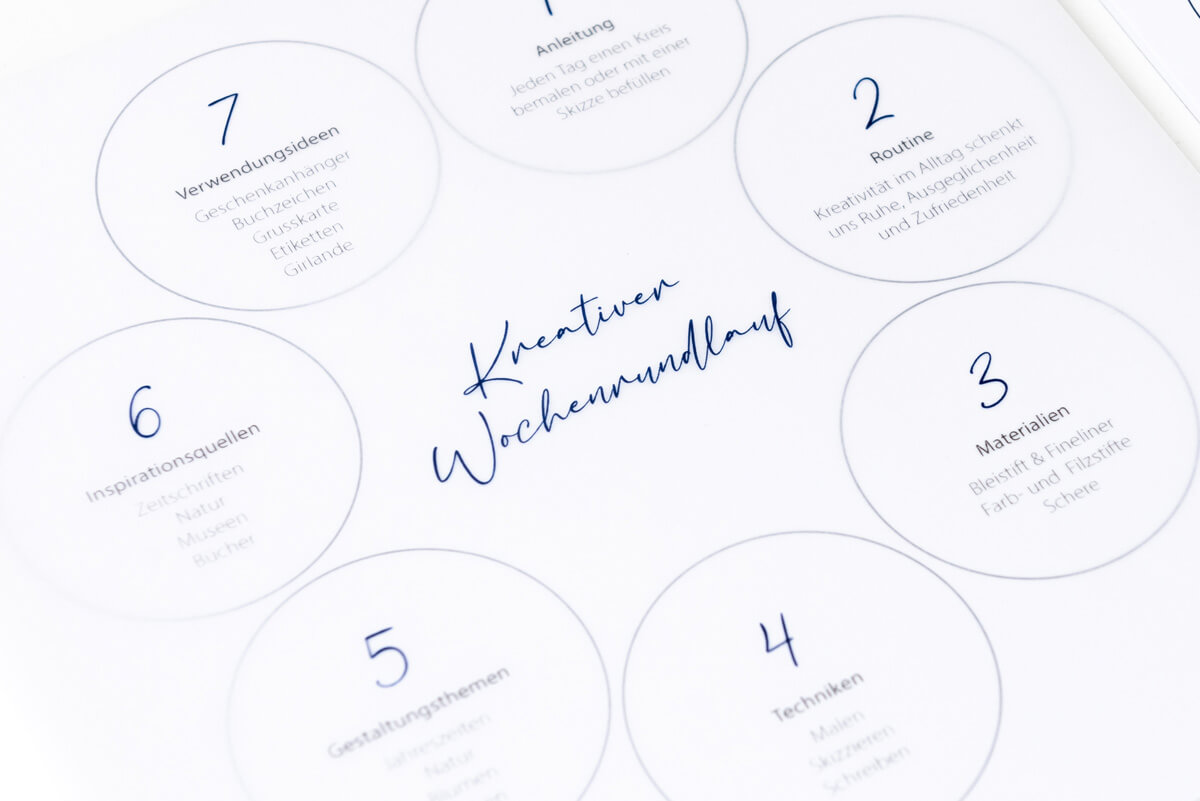 Kreativer
Wochenrundlauf
1
Anleitung
Jeden Tag einen Kreis
bemalen oder mit einer
Skizze befüllen
2
Routine
Kreativität im Alltag schenkt
uns Ruhe, Ausgeglichenheit
und Zufriedenheit
3
Materialien
Bleistift & Fineliner
Farb- und Filzstifte
Schere
4
Techniken
Malen
Skizzieren
Schreiben
5
Gestaltungsthemen
Jahreszeiten
Natur
Blumen
6
Inspirationsquellen
Zeitschriften
Natur
Museen
Bücher
7
Verwendungsideen
Geschenkanhänger
Buchzeichen
Grusskarte
Etiketten
Girlande